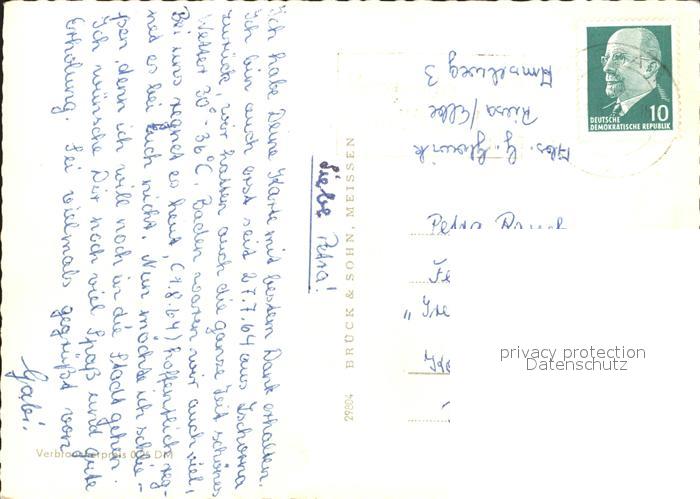 Liebe Petra!
Ich habe Deine Karte mit bestem Dank erhalten.
Ich bin auch erst seit 27.7.64 aus Zschorna
zurück, wir hatten auch die ganze Zeit schönes
Wetter 30°-36°C. Baden waren wir auch viel,
Bei uns regnet es heut, (4.8.64) hoffentlich reg-
net es bei Euch nicht. Nun möchte ich schlie-
ßen, denn ich will noch in die Stadt gehen.
Ich wünsche Dir noch viel Spaß und gute
Erholung. Sei vielmals gegrüßt von
Gabi.
Verbraucherpreis 0,25 DM
29804 BRÜCK & SOHN, MEISSEN
Abs. G.
Riesa/Elbe
Amselweg 3
DEUTSCHE
DEMOKRATISCHE REPUBLIK
10
Petra
privacy protection
Datenschutz